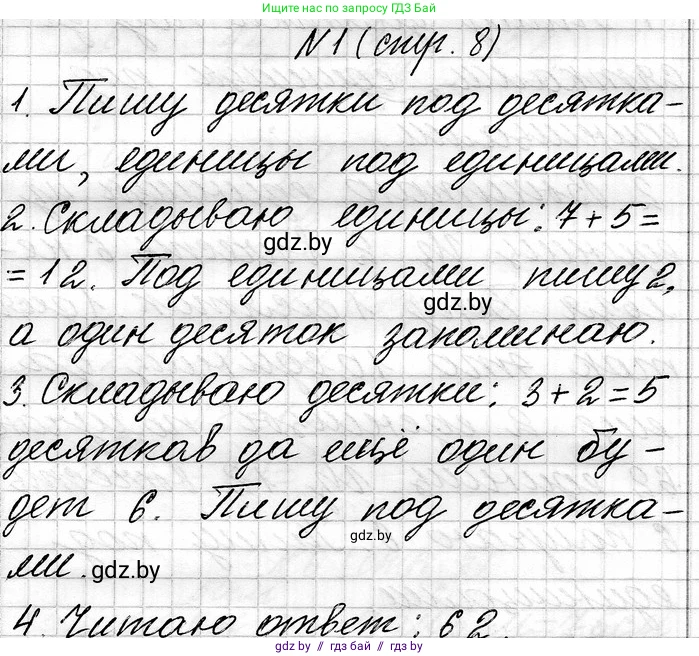 Ищите нас по запросу ГДЗ Баб
N1 (стр. 8)
1. Пишу десятки под десятка-
ми, единицы под единицами.
2. Складываю единицы: 7+5=
gdz.by
=12. Под единицами пишу 2,
gdz.by
а один десяток запоминаю.
3. Складываю десятки: 3+2=5
десятков да ещё один бу-
дет 6. Пишу под десятка-
gdz.by
ми.
gdz.by
4. Читаю ответ: 62.
gdz.by // гдз бай // gdz.by